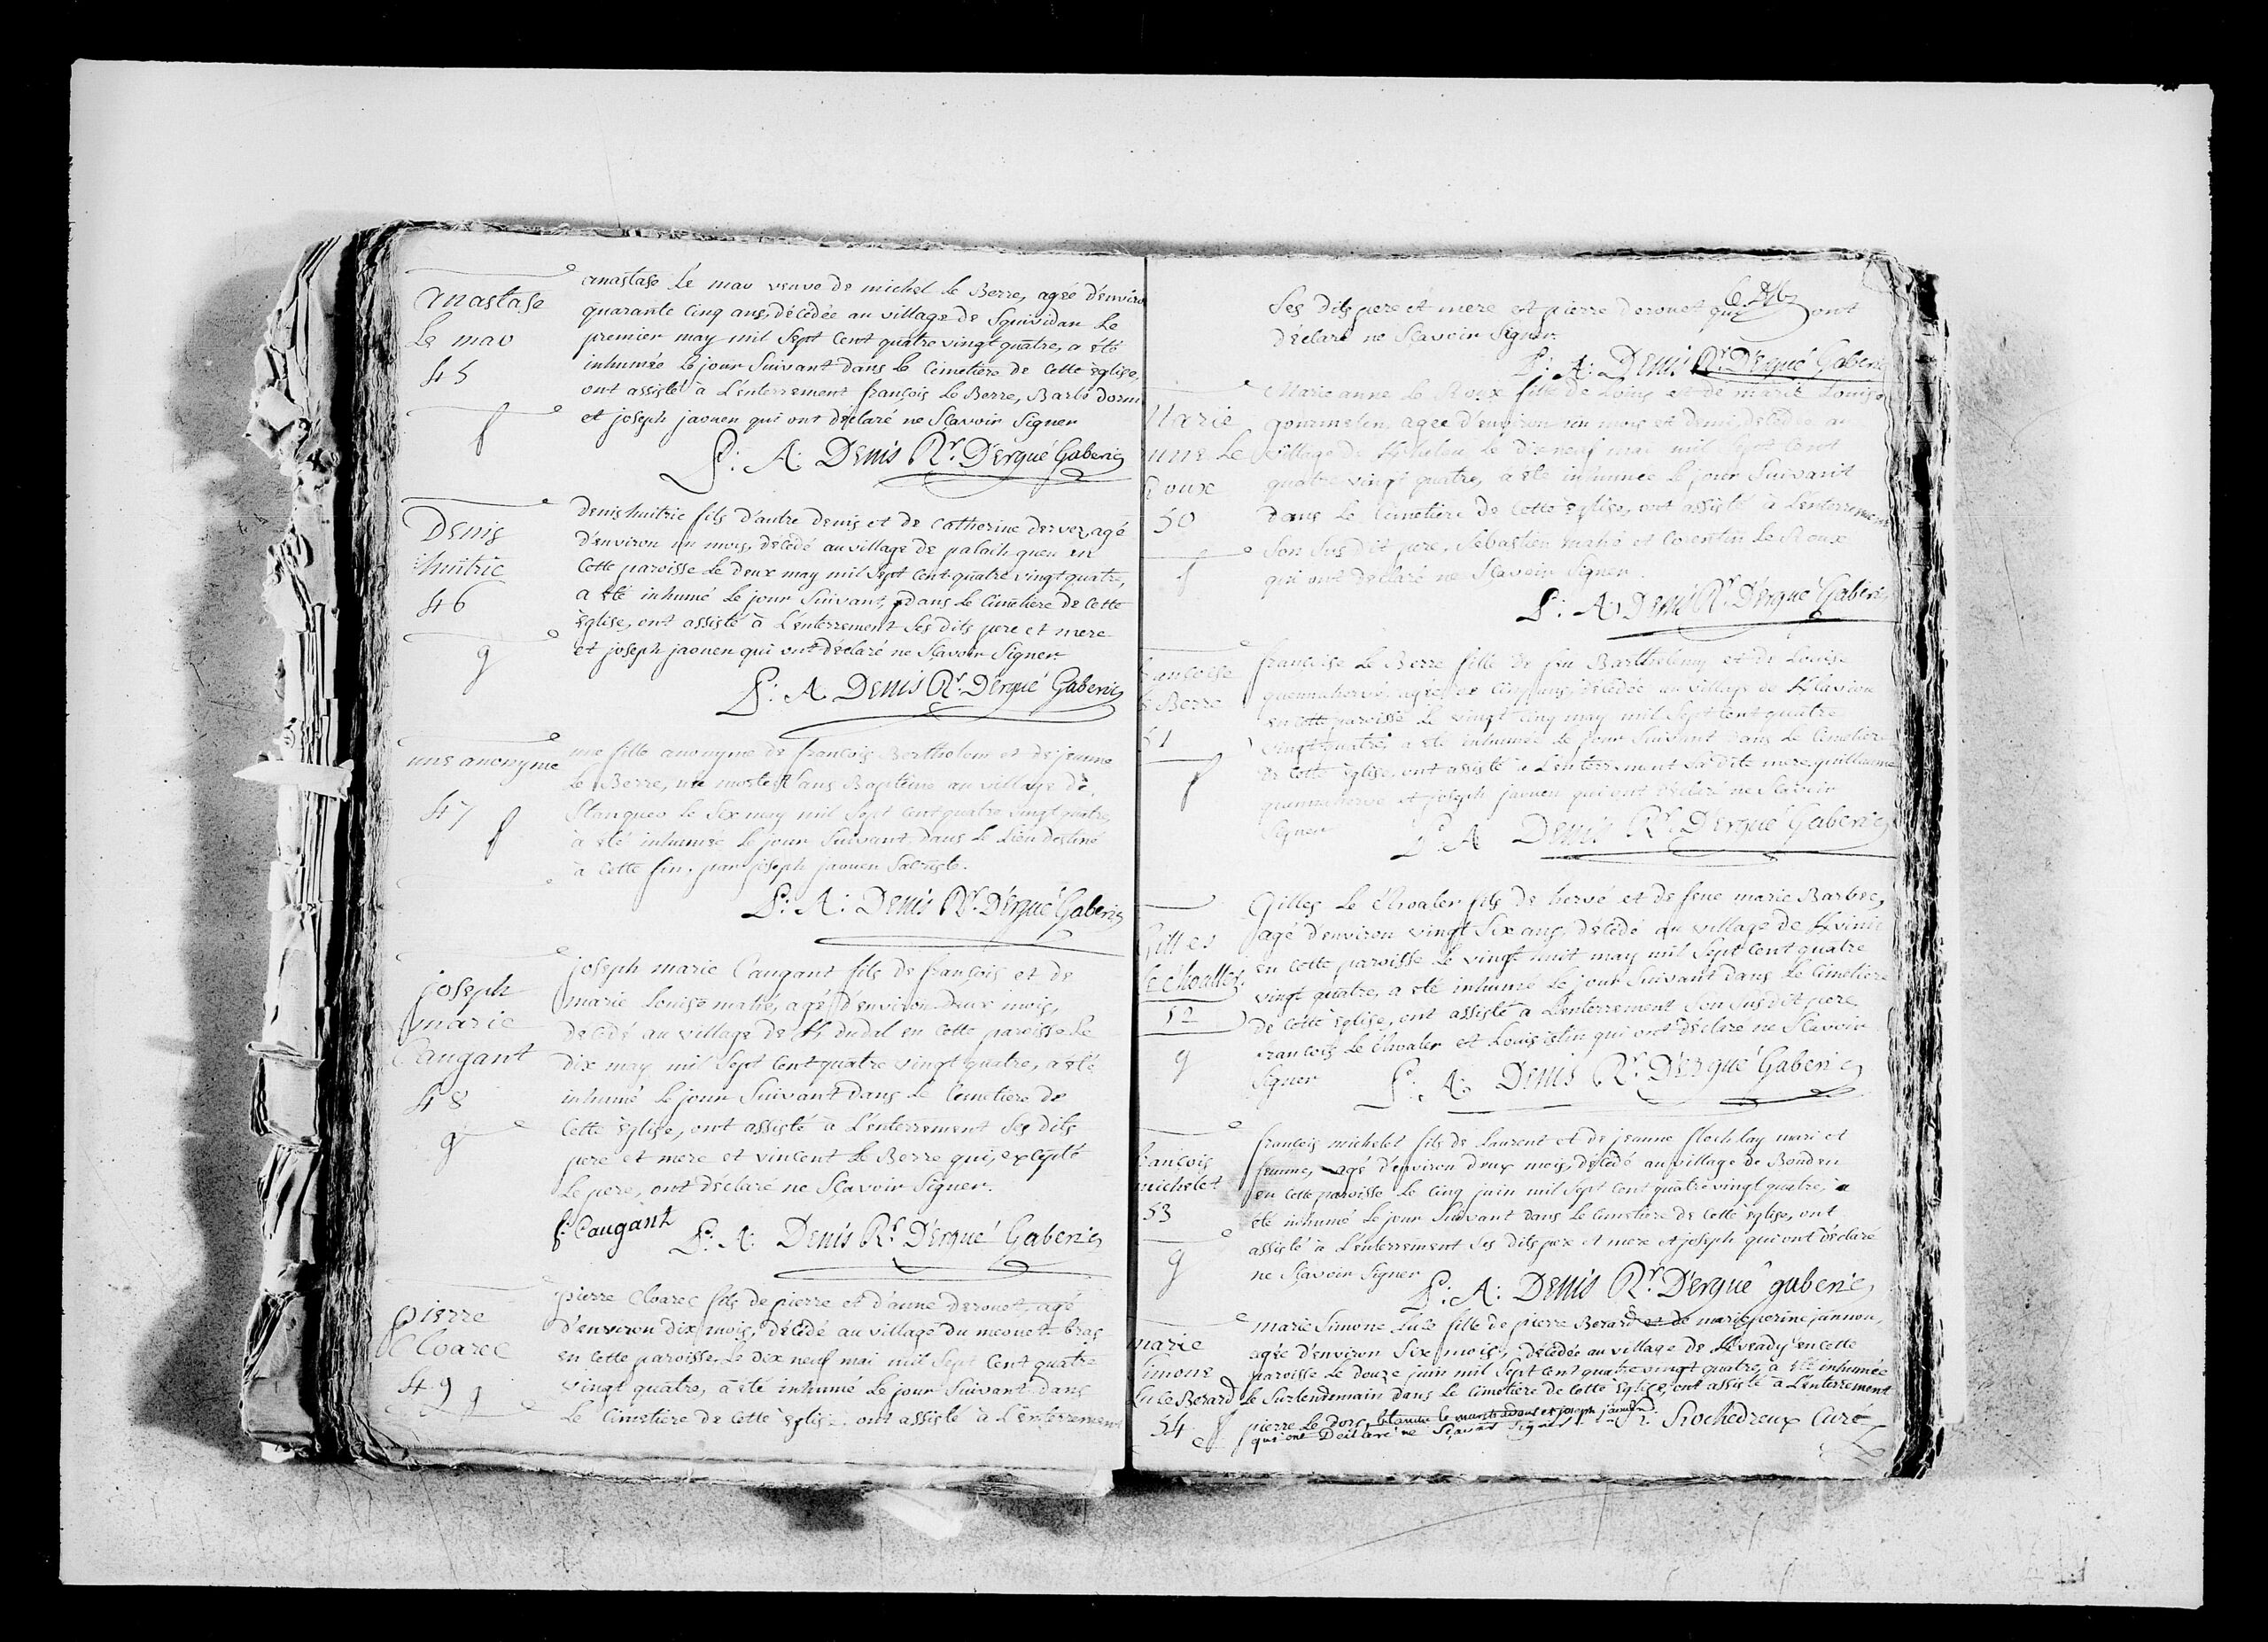 anastase
Le mao
45
f
anastase Le mao veuve de michel Le Berre, agée d'enviro
quarante cinq ans, décédée au village de Squividan Le
premier may mil sept cent quatre vingt quatre, a été
inhumée Le jour Suivant dans Le Cimetiere de Cette Eglise,
ont assisté à L'enterrement françois Le Berre, Barbe dorm
et joseph jaouen qui ont déclaré ne Sçavoir Signer
A: Denis Rr. D'ergué Gaberic
Denis
huitric
46
g
Denis huitric fils d'autre Denis et de Catherine Dervez, agé
d'environ un mois, décédé au village de palach-guen en
Cette paroisse Le deux may mil sept cent quatre vingt quatre,
a été inhumé Le jour Suivant, dans Le Cimetiere de Cette
Eglise, ont assisté à L'enterrement Ses dits pere et mere
et joseph jaouen qui ont déclaré ne Sçavoir Signer.
A. Denis Rr. D'ergué Gaberic
une anonyme
47
f
une fille anonyme de françois Bertholom et de jeanne
Le Berre, morte Sans Baptême au village de
Stanqueo Le Six may mil Sept cent quatre vingt quatre,
à été inhumée Le jour Suivant dans Le Lieu destiné
à Cette fin, par joseph jaouen Sacriste.
A: Denis Rr. D'ergué Gaberic
joseph
marie
Caugant
48
g
joseph marie Caugant fils de françois et de
marie Louise mahé, agé d'environ deux mois,
décédé au village de K dudal en Cette paroisse Le
dix may mil Sept Cent quatre vingt quatre, a été
inhumé Le jour Suivant dans Le Cimetiere de
Cette Eglise, ont assisté à L'enterrement Ses dits
pere et mere et vincent Le Berre qui, excepté
Le pere, ont déclaré ne Sçavoir Signer.
f. Caugant
A: Denis Rr D'ergué Gaberic
pierre
Cloarec
49
g
pierre Cloarec fils de pierre et d'anne Derouet, agé
d'environ dix mois, décédé au village du meouet-bras
en Cette paroisse Le dix neuf mai mil Sept Cent quatre
vingt quatre, a été inhumé Le jour Suivant dans
Le Cimetiere de Cette Eglise. ont assisté à L'enterrement
Ses dits pere et mere et pierre derouet qui ont
déclaré ne Sçavoir Signer.
A: Denis Rr. D'ergué Gaberic
Marie
anne Le
Roux
50
f
Marie anne Le Roux fille de Louis et de marie Louise
gourmelen, agée d'environ un mois et demi, décédée au
village de Le dix neuf mai mil Sept Cent
quatre vingt quatre, a été inhumée Le jour Suivant
dans Le Cimetiere de Cette Eglise, ont assisté à L'enterrement
Son Susdit pere, Sébastien mahé et Corentin Le Roux
qui ont déclaré ne Sçavoir Signer.
A: Denis Rr D'ergué Gaberic
françoise
Le Berre
51
f
françoise Le Berre fille de feu Barthelemy et de Louise
quennehervé, agée de Cinq ans, décédée au village de
en Cette paroisse Le vingt Cinq may mil Sept Cent quatre
vingt quatre, a été inhumée Le jour Suivant dans Le Cimetiere
de Cette Eglise, ont assisté à L'enterrement Sa dite mere, guillaume
quennehervé et joseph jaouen qui ont déclaré ne Sçavoir
Signer
A Denis Rr. D'ergué Gaberic
Gilles
Le choaller
52
g
Gilles Le Choaler fils de hervé et de feue marie Barbe,
agé d'environ vingt Six ans, décédé au village de
en Cette paroisse Le vingt huit may mil Sept Cent quatre
vingt quatre, a été inhumé Le jour Suivant dans Le Cimetiere
de Cette Eglise, ont assisté à L'enterrement Son Susdit pere
francois Le Choaler et Louis istin qui ont déclaré ne Sçavoir
Signer
A: Denis Rr. D'ergué Gaberic
françois
michelet
53
g
françois michelet fils de Laurent et de jeanne flochlay mari et
femme, agé d'environ deux mois, décédé au village de Bouden
en Cette paroisse Le Cinq juin mil Sept Cent quatre vingt quatre, a
été inhumé Le jour Suivant dans Le Cimetiere de Cette Eglise, ont
assisté à L'enterrement Ses dits pere et mere et joseph qui ont déclaré
ne Sçavoir Signer
A: Denis Rr. D'ergué gaberic
marie
Simone
Berard
54
f
marie Simone fille de pierre Berard et de marie perine jannou,
agée d'environ Six mois, décédée au village de en Cette
paroisse Le douze juin mil Sept Cent quatre vingt quatre, a été inhumée
Le Surlendemain dans Le Cimetiere de Cette Eglise, ont assisté à L'enterrement
pierre Le Dore, et joseph jaouen
qui ont Declaré ne Sçavoir Signer
Rochedreux Curé